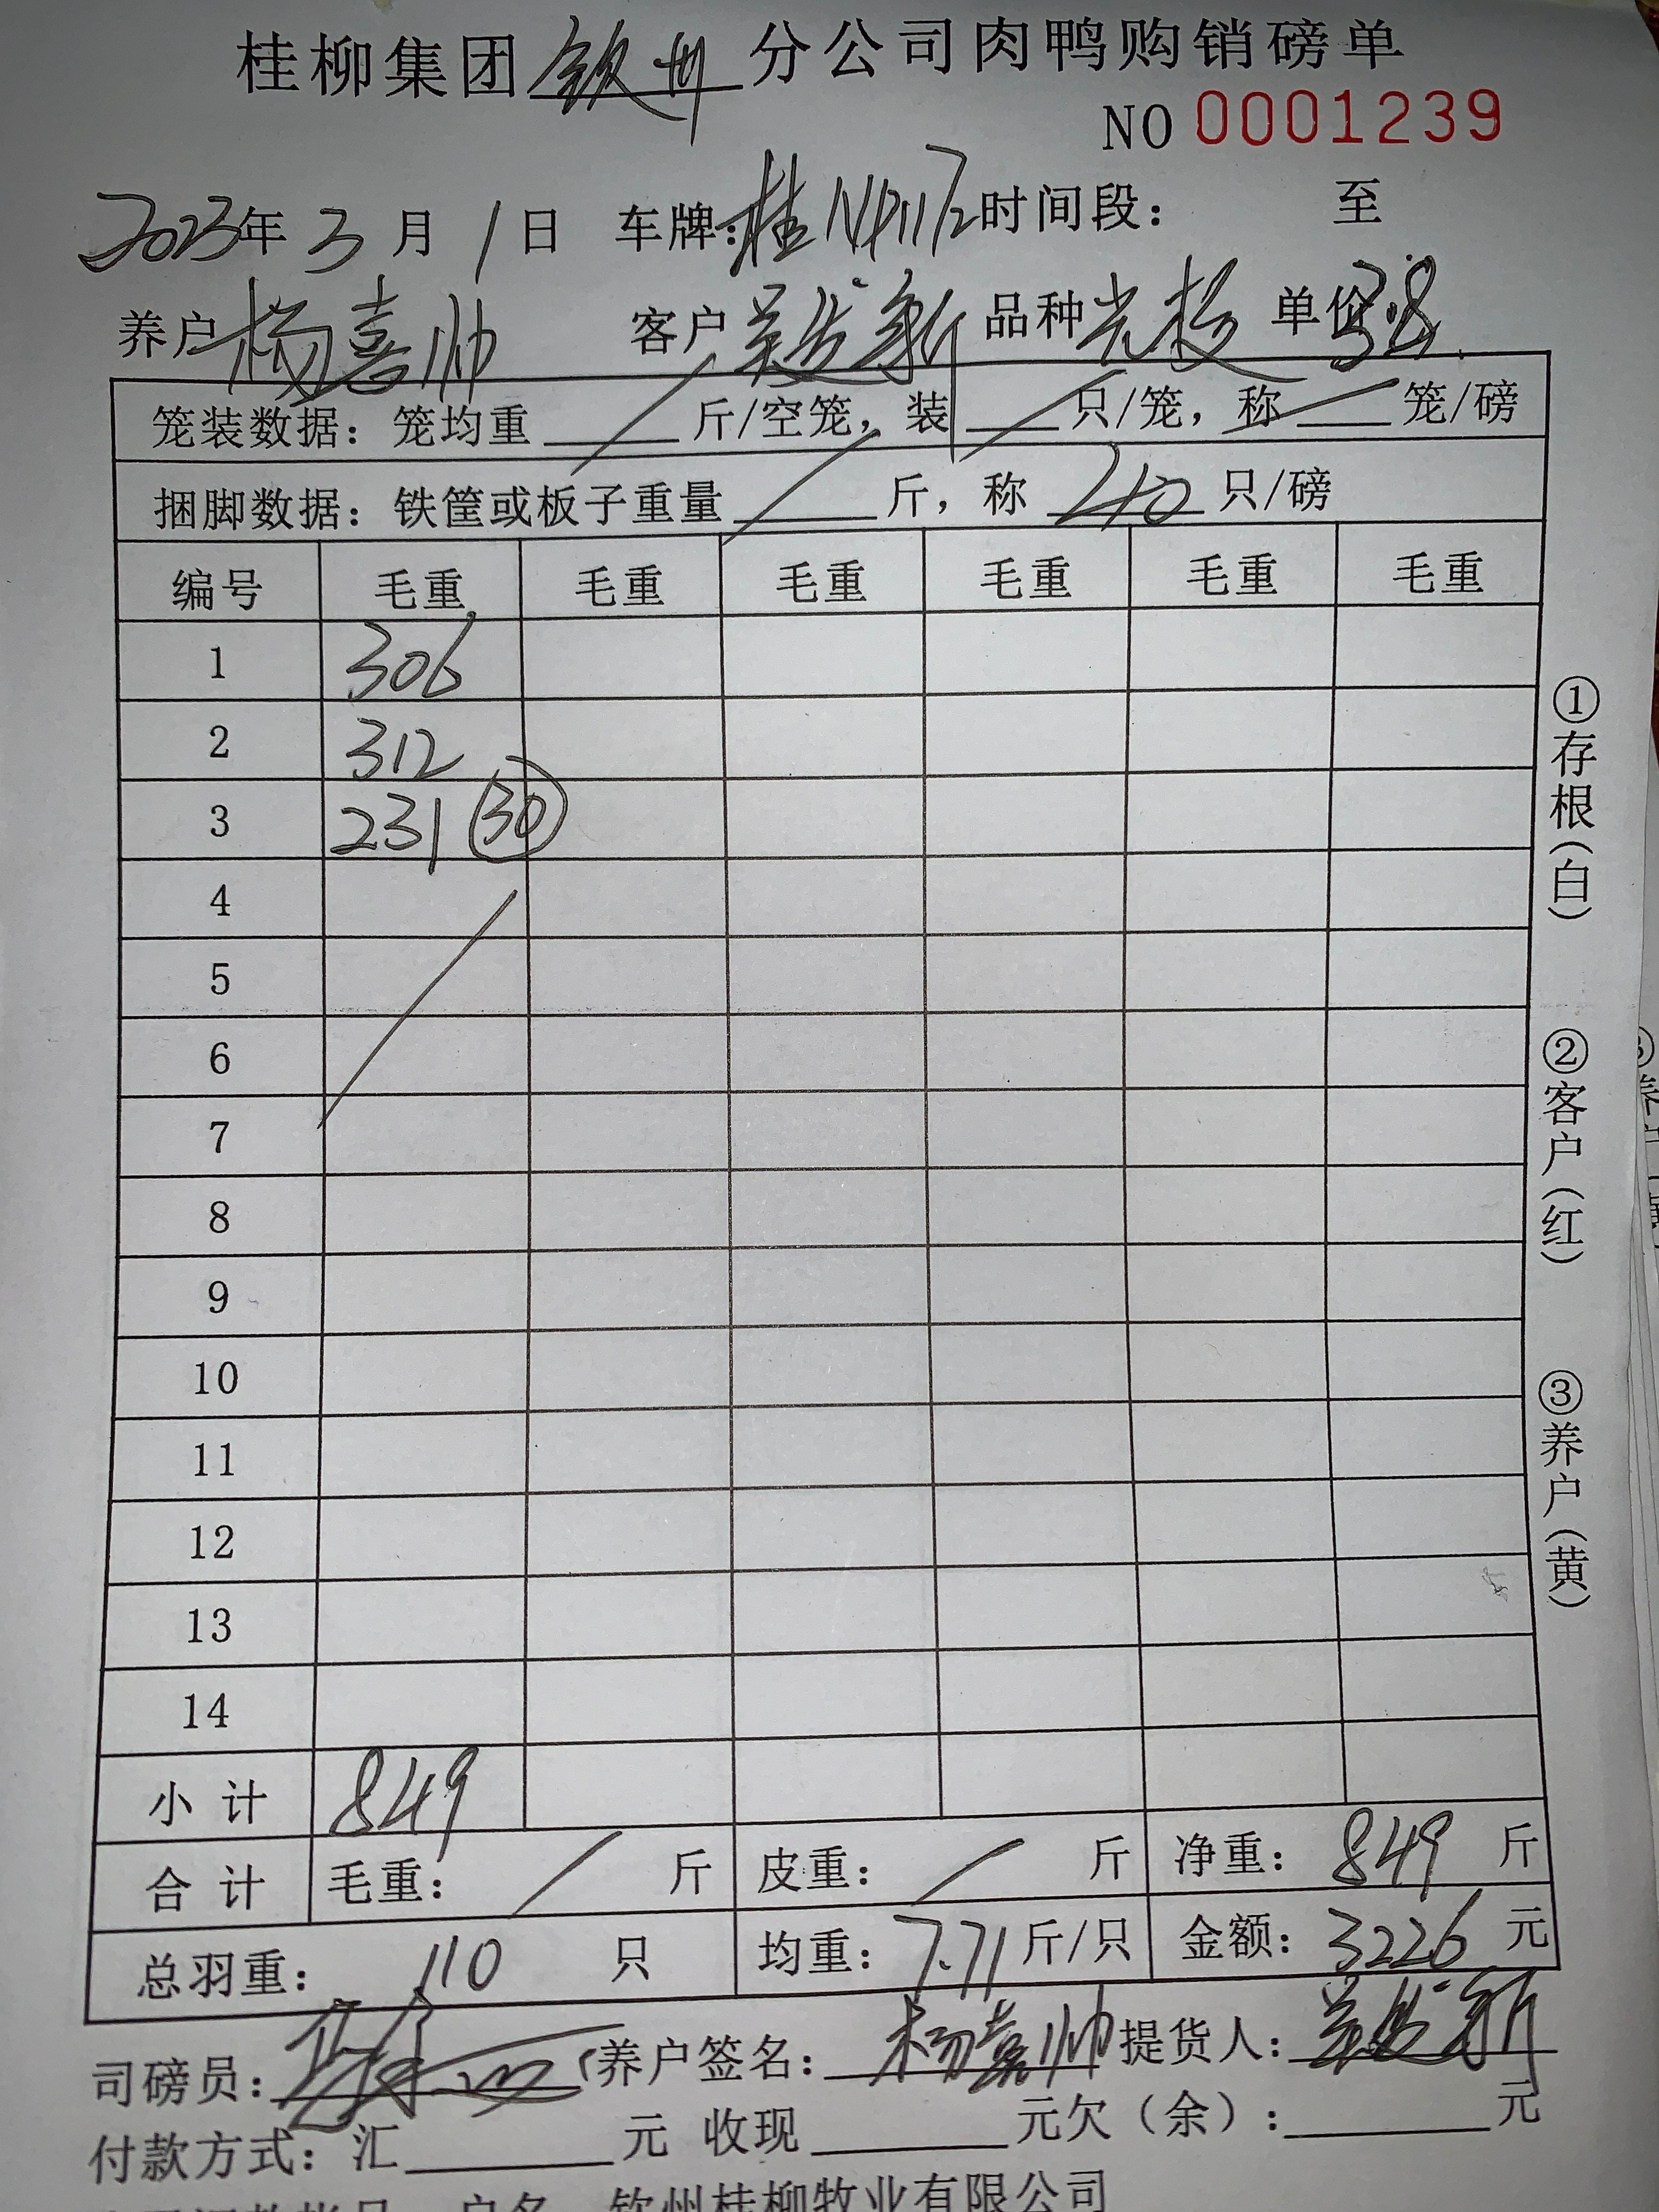 桂柳集团钦州分公司肉鸭购销磅单
NO 0001239
2023年 3 月 1 日 车牌:桂 时间段: 至
养户 杨喜帅 客户 新 品种 单价 3.8
笼装数据: 笼均重 / 斤/空笼, 装 / 只/笼, 称 / 笼/磅
捆脚数据: 铁筐或板子重量 / 斤, 称 40 只/磅
编号 毛重 毛重 毛重 毛重 毛重 毛重
1 306
2 312
3 231 30
4
5
6
7
8
9
10
11
12
13
14
小计 849
合计 毛重: / 斤 皮重: / 斤 净重: 849 斤
总羽重: 110 只 均重: 7.71 斤/只 金额: 3226 元
司磅员: 养户签名: 杨喜帅 提货人: 新
付款方式: 汇 元 收现 元欠(余): 元
户名 钦州桂柳牧业有限公司
①存根(白)
②客户(红)
③养户(黄)